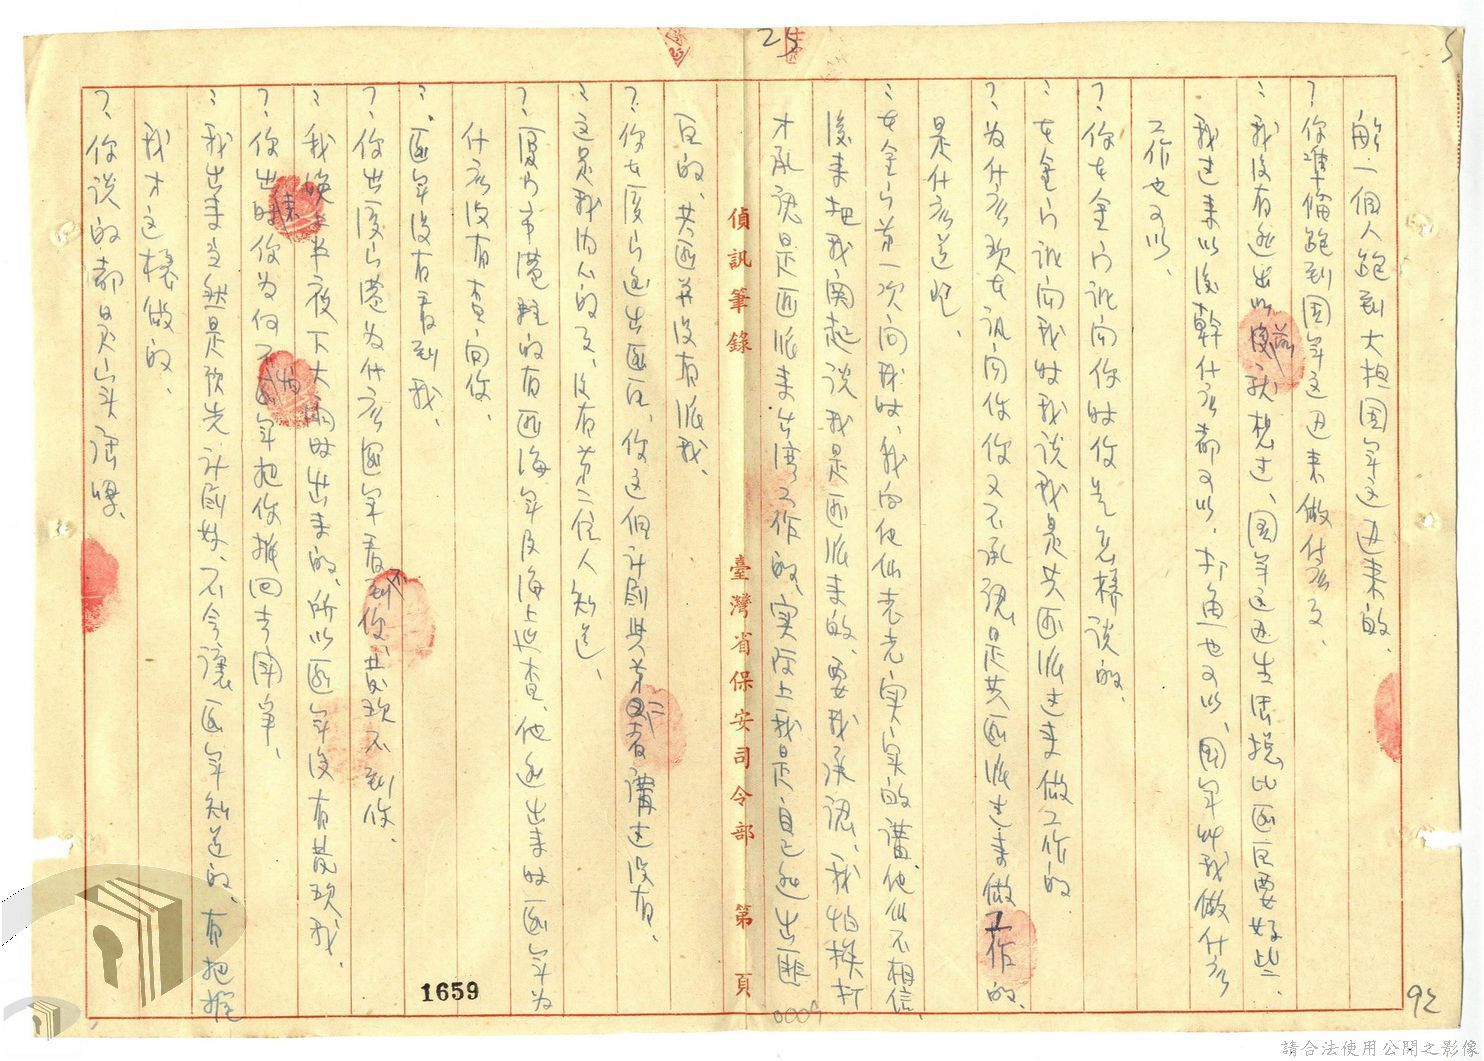 25
5
能一個人跑到大担国军这边来的、
?你準備跑到国军这边来做什么?
:我没有逃出以前後就想过、国军这边生活總比匪区要好些、
我过来以後幹什么都可以、打魚也可以、国军叫我做什么
工作也可以、
?你在金门訊问你时你是怎樣说的、
:在金门訊问我时我说我是共匪派过来做工作的
?为什么現在訊问你你又不承認是共匪派过来做工作的、
是什么道理、
:在金门第一次问我时、我向他们老老实实的講、他们不相信、
後来把我関起说我是匪派来的、要我承認、我怕挨打
才承認是匪派来台湾工作的、实际上我是自己逃出匪
偵訊筆錄 臺灣省保安司令部 第 頁
区的、共匪并没有派我、
?你在厦门逃出匪区、你这个计劃與第二者講过没有、
:这是我内心的事、没有第二位人知道、
?厦门市港裡的有匪海军及海上巡查、他逃出来时匪军为
什么没有查问你、
:匪军没有看到我、
?你出厦门港为什么匪军看不到你、發现不到你、
:我晚上半夜下大雨时出来的、所以匪军没有發现我、
?你出来时你为何不怕匪军把你推回去閗争、
:我出来当然是预先计劃好、不会讓匪军知道的、有把握
我才这樣做的、
?你说的都是真实话嗎、
1659
0009
92
請合法使用公開之影像